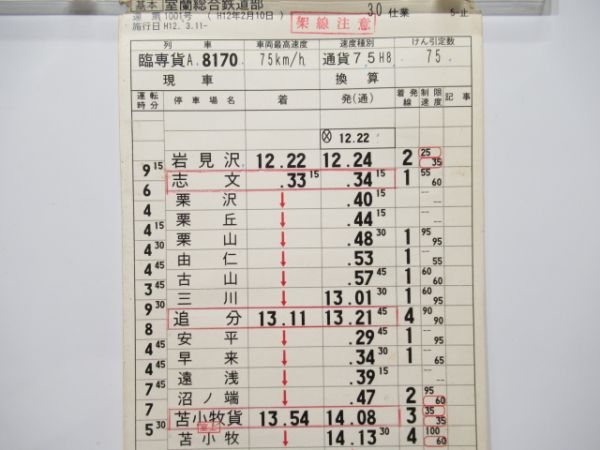 基本 室蘭総合鉄道部
運 第1001号 ( H12年2月10日 ) 架線注意 30 仕業 5-止
施行日 H12. 3.11-
列 車 車両最高速度 速度種別 けん引定数
臨専貨A. 8170 75km/h 通貨75H8 75.
現 車 換 算
運転時分 停 車 場 名 着 発(通) 着発線 制限速度 記 事
⊗ 12.22
岩見沢 12.22 12.24 2 25 35
9 15
志文 .33 15 .34 15 1 55 60
6
栗沢 ↓ .40 15
4
栗丘 ↓ .44 15
4 15
栗山 ↓ .48 30 1 95 95
4 30
由仁 ↓ .53 1 -- 55
4 45
古山 ↓ .57 45 1 60 60
3 45
三川 ↓ 13.01 30 1 -- 60
9 30
追分 13.11 13.21 45 4 90 90
8
安平 ↓ .29 45 1 -- 95
4 45
早来 ↓ .34 30 1 -- 65
4 45
遠浅 ↓ .39 15 --
7 45
沼ノ端 ↓ .47 2 95 60
7
苫小牧貨 13.54 14.08 3 35 35
5 30
苫小牧 ↓ 14.13 30 4 100 60